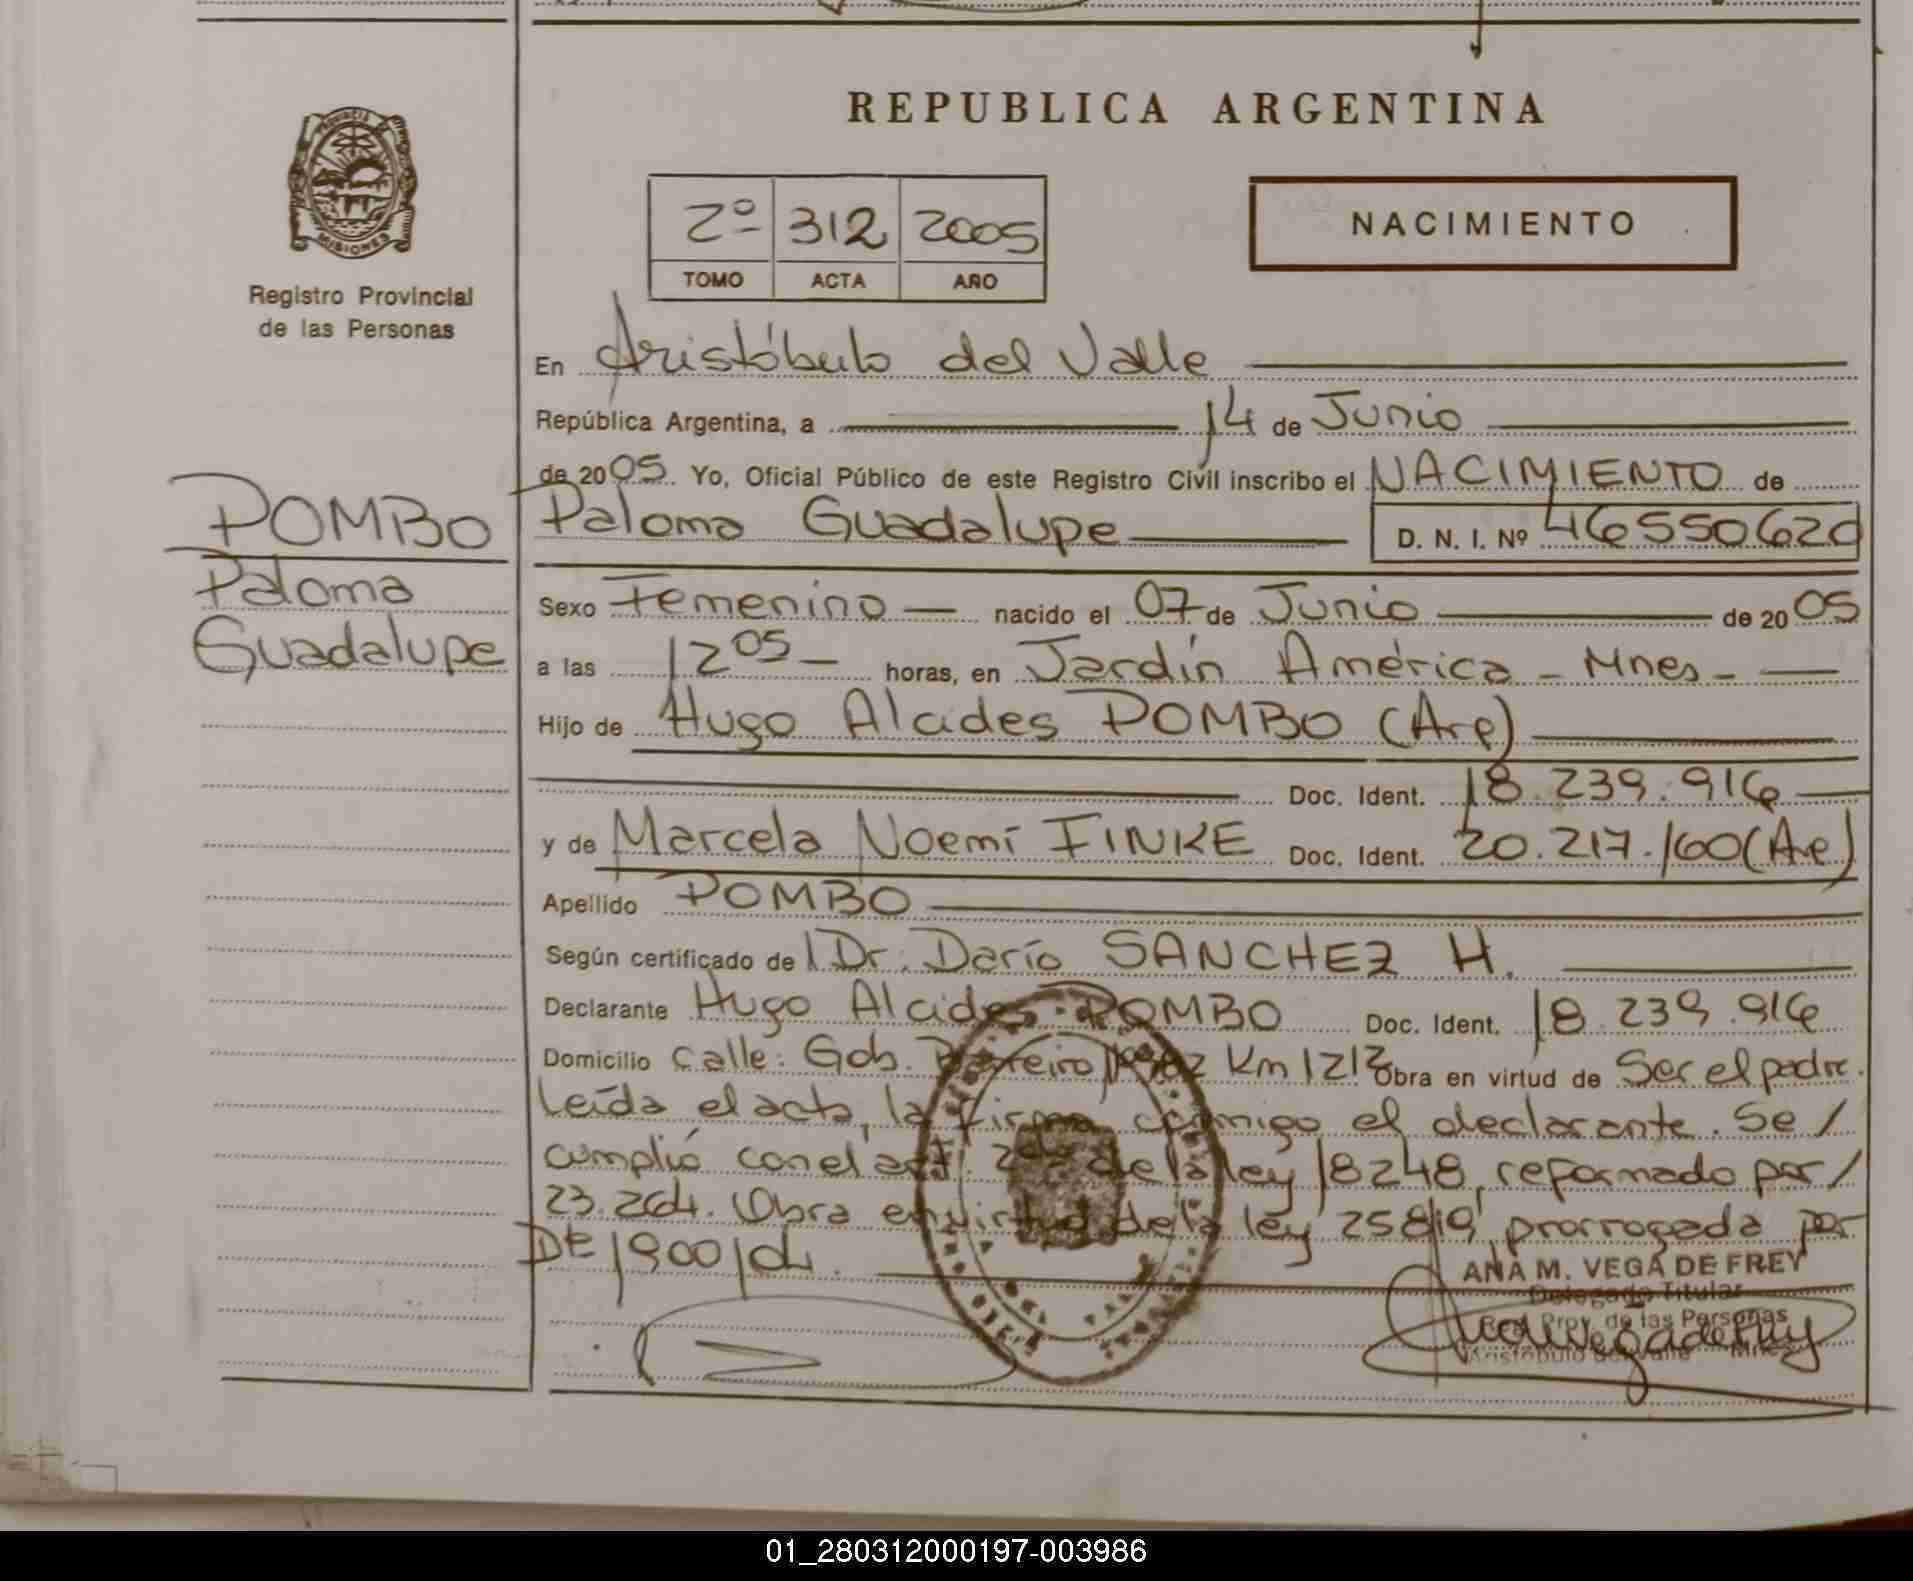 REPUBLICA ARGENTINA
PROVINCIA DE
MISIONES
Registro Provincial
de las Personas
2º 312 2005
TOMO ACTA AÑO
NACIMIENTO
En Aristóbulo del Valle
República Argentina, a 14 de Junio
de 2005. Yo, Oficial Público de este Registro Civil inscribo el NACIMIENTO de
POMBO
Paloma
Guadalupe
Paloma Guadalupe D. N. I. Nº 46550620
Sexo Femenino nacido el 07 de Junio de 2005
a las 12 05 horas, en Jardín América - Mnes -
Hijo de Hugo Alcides POMBO (Arg)
Doc. Ident. 18.239.916
y de Marcela Noemí FINKE Doc. Ident. 20.217.160 (Arg)
Apellido POMBO
Según certificado de Dr. Darío SANCHEZ H.
Declarante Hugo Alcides POMBO Doc. Ident. 18.239.916
Domicilio calle: Gob. Km 1212 Obra en virtud de Ser el padre.
Leída el acta, la firma conmigo el declarante. Se /
cumplió con el art. 2do de la ley 18248, reformado por /
23.264. Obra en virtud de la ley 25819, prorrogada por
DE 1900/04.
ANA M. VEGA DE FREY
Delegado Titular
Reg. Prov. de las Personas
Aristóbulo del Valle Mnes
01_280312000197-003986